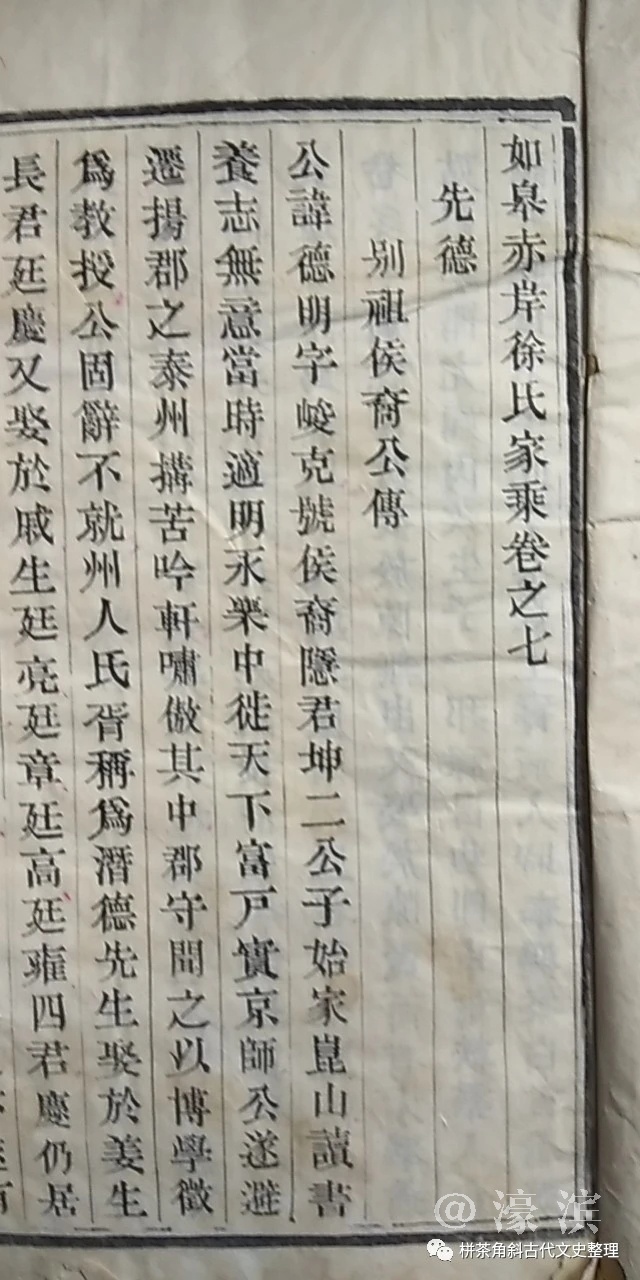 如皋赤岸徐氏家乘卷之七
先德
别祖侯裔公傳
公諱德明字峻克號侯裔隱君坤二公子始家崑山讀書
養志無意當時適明永樂中徙天下富戸實京師公遂避
遷揚郡之泰州搆苦吟軒嘯傲其中郡守聞之以博學徵
爲教授公固辭不就州人氏胥稱爲潛德先生娶於姜生
長君廷慶又娶於戚生廷亮廷章廷高廷雍四君慶仍居
@濠滨
栟茶角斜古代文史整理